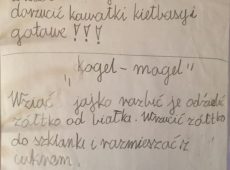 dorzucić kawałki kiełbasy i
gotowe !!!
"Kogel-mogel"
Wziąć jajko rozbić je oddzielić
żółtko od białka. Wrzucić żółtko
do szklanki i rozmieszać z
cukrem.